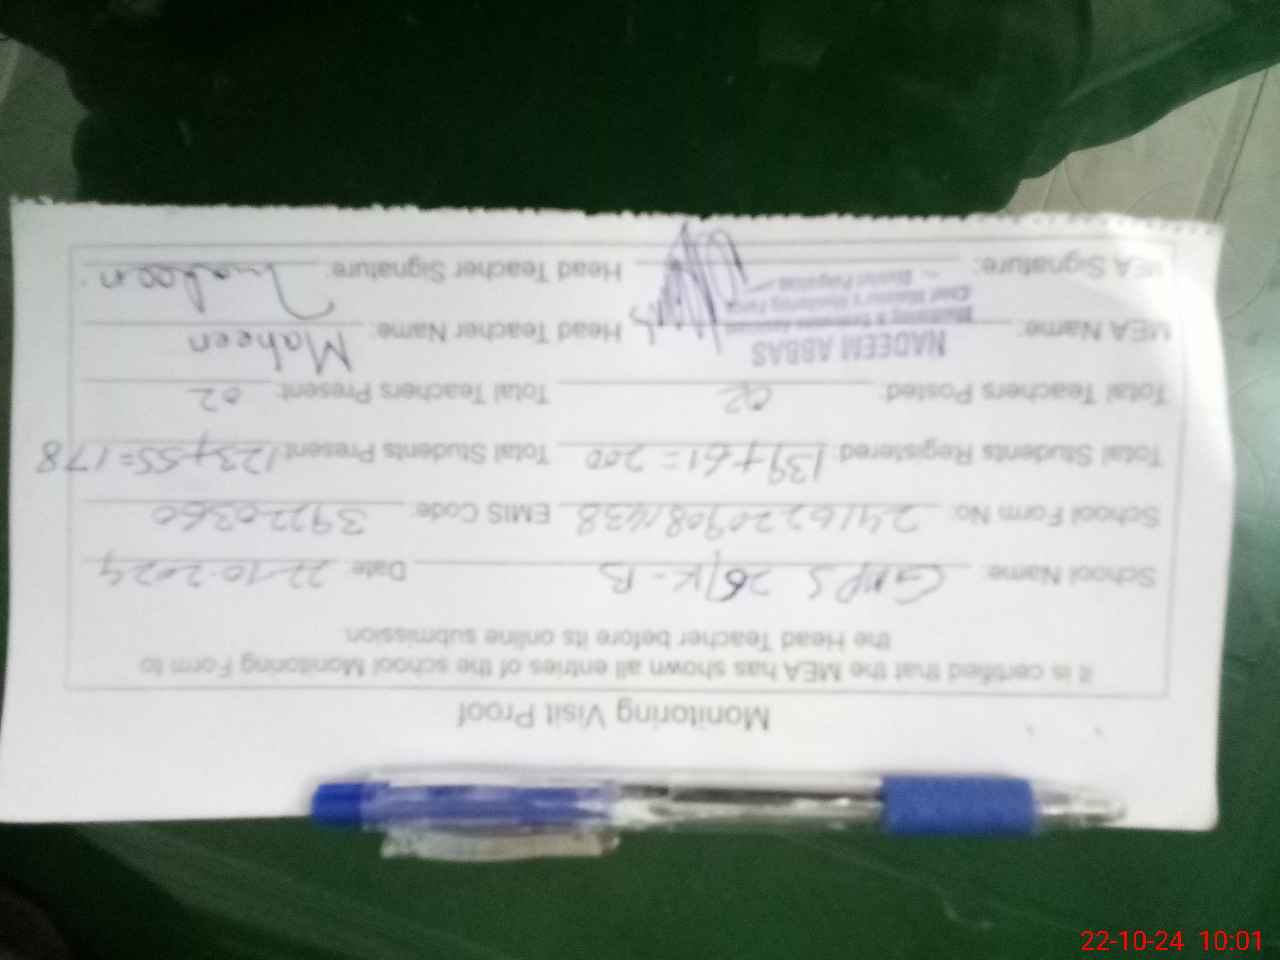 Monitoring Visit Proof
it is certified that the MEA has shown all entries of the school Monitoring Form to
the Head Teacher before its online submission.
School Name: GMPS 26/K-B Date: 22-10-2024
School Form No: EMIS Code: 39220360
Total Students Registered: 139+61=200 Total Students Present: 123+55=178
Total Teachers Posted: 02 Total Teachers Present: 02
MEA Name: NADEEM ABBAS Head Teacher Name: Maheen
Monitoring & Evaluation Assistant
Chief Minister's Monitoring Force
District Pakpattan
MEA Signature: Head Teacher Signature: Maheen
22-10-24 10:01